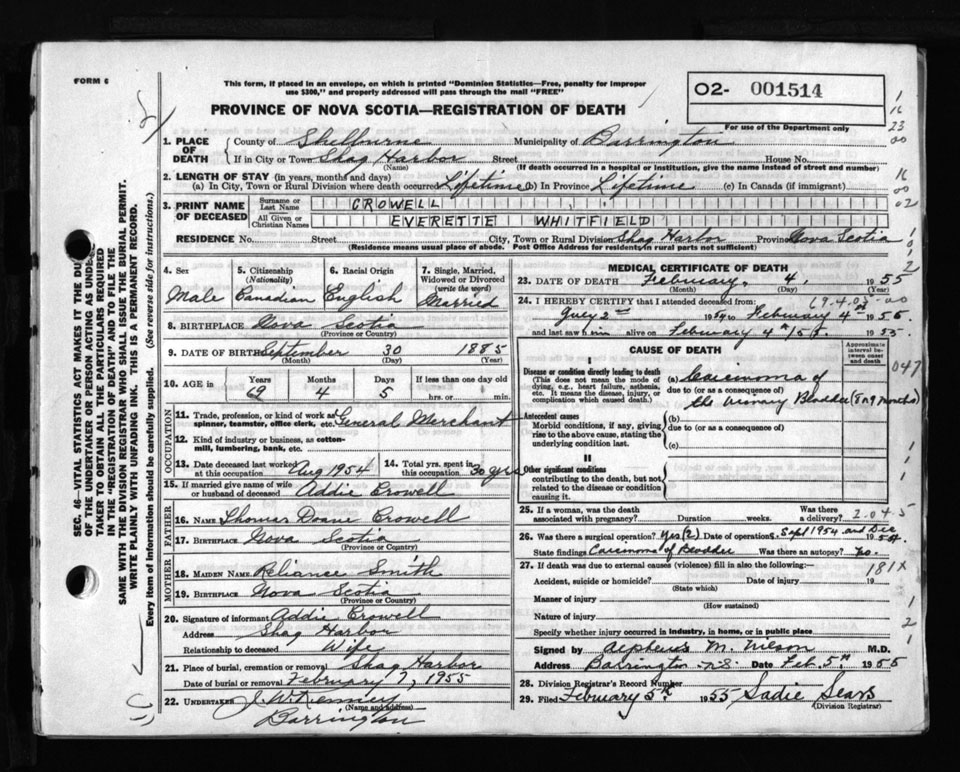 FORM 6
This form, if placed in an envelope, on which is printed "Dominion Statistics—Free, penalty for improper
use $300," and properly addressed will pass through the mail "FREE"
O2- 001514
For use of the Department only
PROVINCE OF NOVA SCOTIA—REGISTRATION OF DEATH
1. PLACE OF DEATH
County of Shelburne Municipality of Barrington
If in City or Town Shag Harbor Street House No.
(Name) (If death occurred in a hospital or institution, give the name instead of street and number)
2. LENGTH OF STAY (in years, months and days)
(a) In City, Town or Rural Division where death occurred Lifetime (b) In Province Lifetime (c) In Canada (if immigrant)
3. PRINT NAME OF DECEASED
Surname or Last Name CROWELL
All Given or Christian Names EVERETTE WHITFIELD
RESIDENCE No. Street City, Town or Rural Division Shag Harbor Province Nova Scotia
(Residence means usual place of abode. Post Office Address for residents in rural parts not sufficient)
4. Sex
Male
5. Citizenship
(Nationality)
Canadian
6. Racial Origin
English
7. Single, Married,
Widowed or Divorced
(write the word)
Married
8. BIRTHPLACE Nova Scotia
(Province or Country)
9. DATE OF BIRTH September 30 1885
(Month) (Day) (Year)
10. AGE in
Years Months Days If less than one day old
69 4 5 hrs. or min.
OCCUPATION
11. Trade, profession, or kind of work as
spinner, teamster, office clerk, etc. General Merchant
12. Kind of industry or business, as cotton-
mill, lumbering, bank, etc.
13. Date deceased last worked
at this occupation Aug 1954
14. Total yrs. spent in
this occupation 30 yrs
15. If married give name of wife
or husband of deceased Addie Crowell
FATHER
16. NAME Thomas Doane Crowell
17. BIRTHPLACE Nova Scotia
(Province or Country)
MOTHER
18. MAIDEN NAME Reliance Smith
19. BIRTHPLACE Nova Scotia
(Province or Country)
20. Signature of informant Addie Crowell
Address Shag Harbor
Relationship to deceased Wife
21. Place of burial, cremation or removal Shag Harbor
Date of burial or removal February 7, 1955
22. UNDERTAKER J. W. Kenney
(Name and address)
Barrington
MEDICAL CERTIFICATE OF DEATH
23. DATE OF DEATH February 4, 1955
(Month) (Day)
24. I HEREBY CERTIFY that I attended deceased from:
July 2nd 1954 to February 4th 1955.
and last saw him alive on February 4th 1955
CAUSE OF DEATH
Approximate
interval be-
tween onset
and death
I
Disease or condition directly leading to death
(This does not mean the mode of
dying, e.g., heart failure, asthenia,
etc. It means the disease, injury, or
complication which caused death.)
(a) Carcinoma of
due to (or as a consequence of)
the Urinary Bladder (8 or 9 months)
Antecedent causes
Morbid conditions, if any, giving
rise to the above cause, stating the
underlying condition last.
(b)
due to (or as a consequence of)
(c)
II
Other significant conditions
contributing to the death, but not
related to the disease or condition
causing it.
25. If a woman, was the death
associated with pregnancy? Duration weeks. Was there
a delivery?
2045
26. Was there a surgical operation? Yes (2) Date of operations. Sept 1954 and Dec 1954.
State findings Carcinoma of Bladder Was there an autopsy? No.
27. If death was due to external causes (violence) fill in also the following:
181X
Accident, suicide or homicide? Date of injury 19
(State which)
Manner of injury
(How sustained)
Nature of injury
Specify whether injury occurred in industry, in home, or in public place
Signed by Alpheus M. Wilson M.D.
Address Barrington N.S. Date Feb. 5th 1955
28. Division Registrar's Record Number
29. Filed February 5th 1955 Sadie Sears
(Division Registrar)
047
SEC. 46—VITAL STATISTICS ACT MAKES IT THE DUTY
OF THE UNDERTAKER OR PERSON ACTING AS UNDER-
TAKER TO OBTAIN ALL THE PARTICULARS REQUIRED
IN THE "REGISTRATION OF DEATH" AND TO FILE THE
SAME WITH THE DIVISION REGISTRAR WHO SHALL ISSUE THE BURIAL PERMIT.
WRITE PLAINLY WITH UNFADING INK. THIS IS A PERMANENT RECORD.
Every item of information should be carefully supplied. (See reverse side for instructions.)